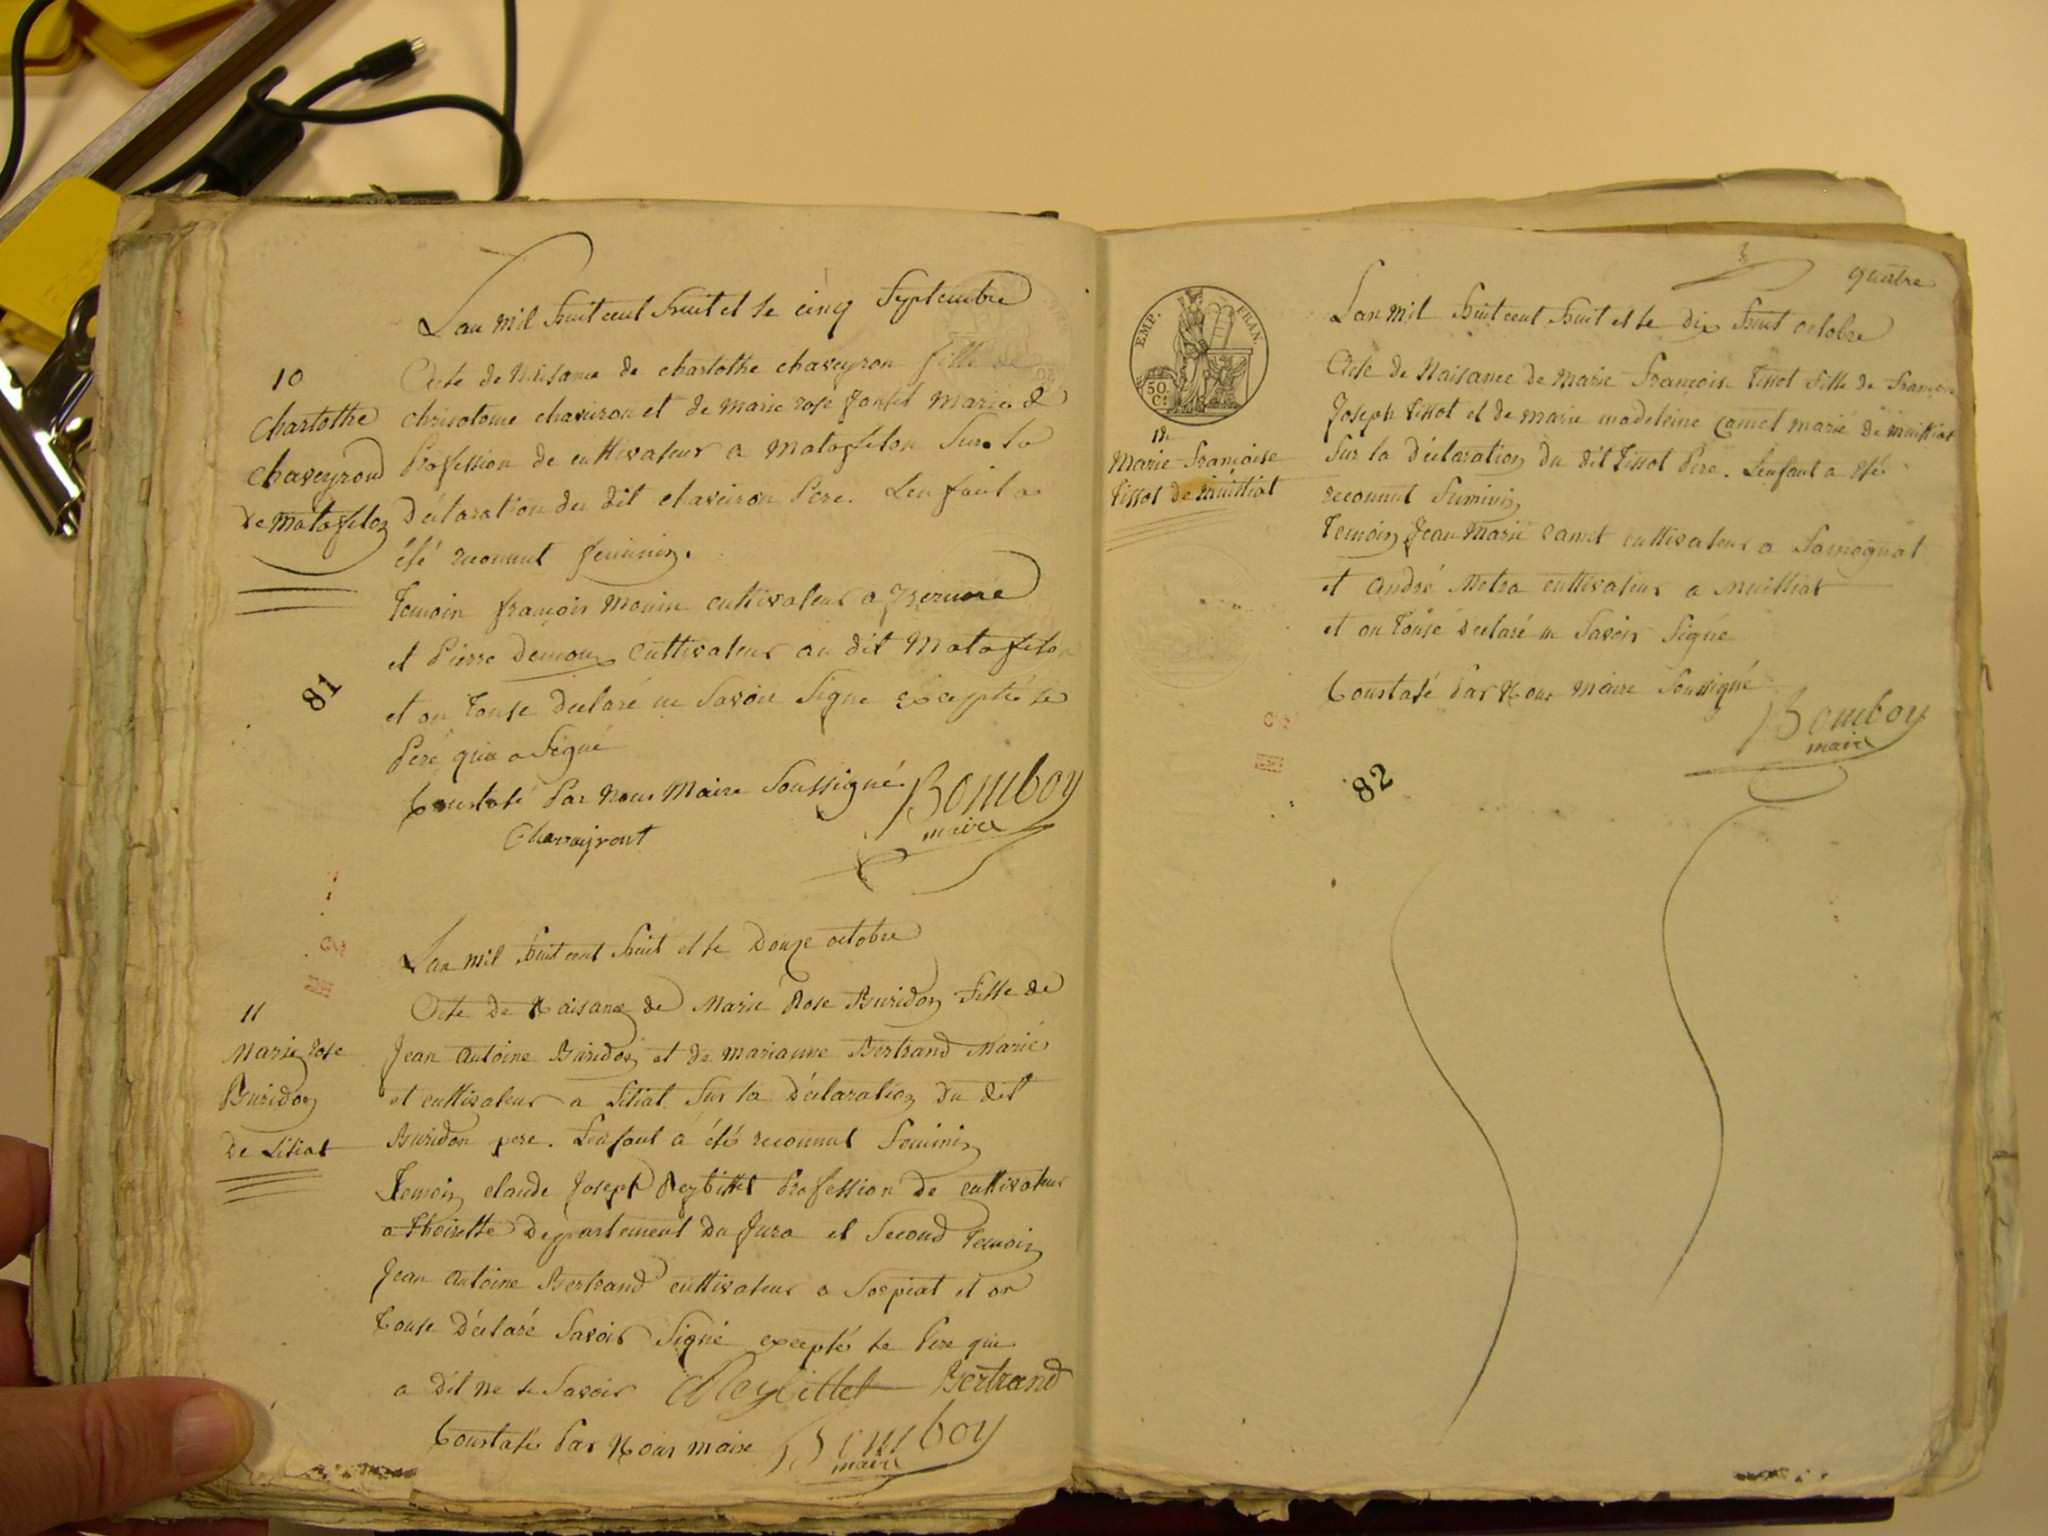 Lan mil huit cent huit et le cinq Septembre
10
Charlothe
Chaveyrond
de Matafelon
Acte de Naisance de charlothe chaveyron fille de
chrisotome chaveiron et de marie rose Marié &
Profession de cultivateur a Matafelon Sur la
déclaration du dit chaveiron Pere. Lenfant a
été reconnut feminin.
Temoin françois Monin cultivateur a
et Pierre cultivateur au dit Matafelon
et on Touse declaré ne Savoir Signe excepté le
Peré qui a Signé
Constaté Par Nous Maire Soussigné Bomboy
maire
Chavayront
81
Lan mil huit cent huit et le Douze octobre
11
Marie rose
Buridon
De Litiat
Acte De Naisance de Marie Rose Buridon fille de
Jean Antoine Buridon et de marianne Bertrand Marié
et cultivateur a Litiat Sur la Déclaration Du dit
Buridon pere. Lenfant a été reconnut Feminin
Temoin claude Joseph Reybillet Profession de cultivateur
a Thoirette Departement Du Jura et Second Temoin
Jean Antoine Bertrand cultivateur a Sorpiat et on
Touse Déclaré Savoir Signé excepté le Pere qui
a dit ne le Savoir Reybillet Bertrand
Constaté Par Nous maire Bomboy
maire
quatre
EMP. FRAN.
50
Ct
Lan mil huit cent huit et le Dix huit octobre
12
Marie Françoise
Tissot de Muittiat
Acte de Naisance de Marie Françoise Tissot fille de François
Joseph Tissot et de marie madeleine Camet marié de Muittiat
Sur la Déclaration du dit Tissot Pere. Lenfant a été
reconnut Feminin
Temoin Jean Marie Camet cultivateur a Samognat
et André Metra cultivateur a Muittiat
et on Touse Declaré ne Savoir Signé
Constaté Par Nous Maire Soussigné
Bomboy
maire
82